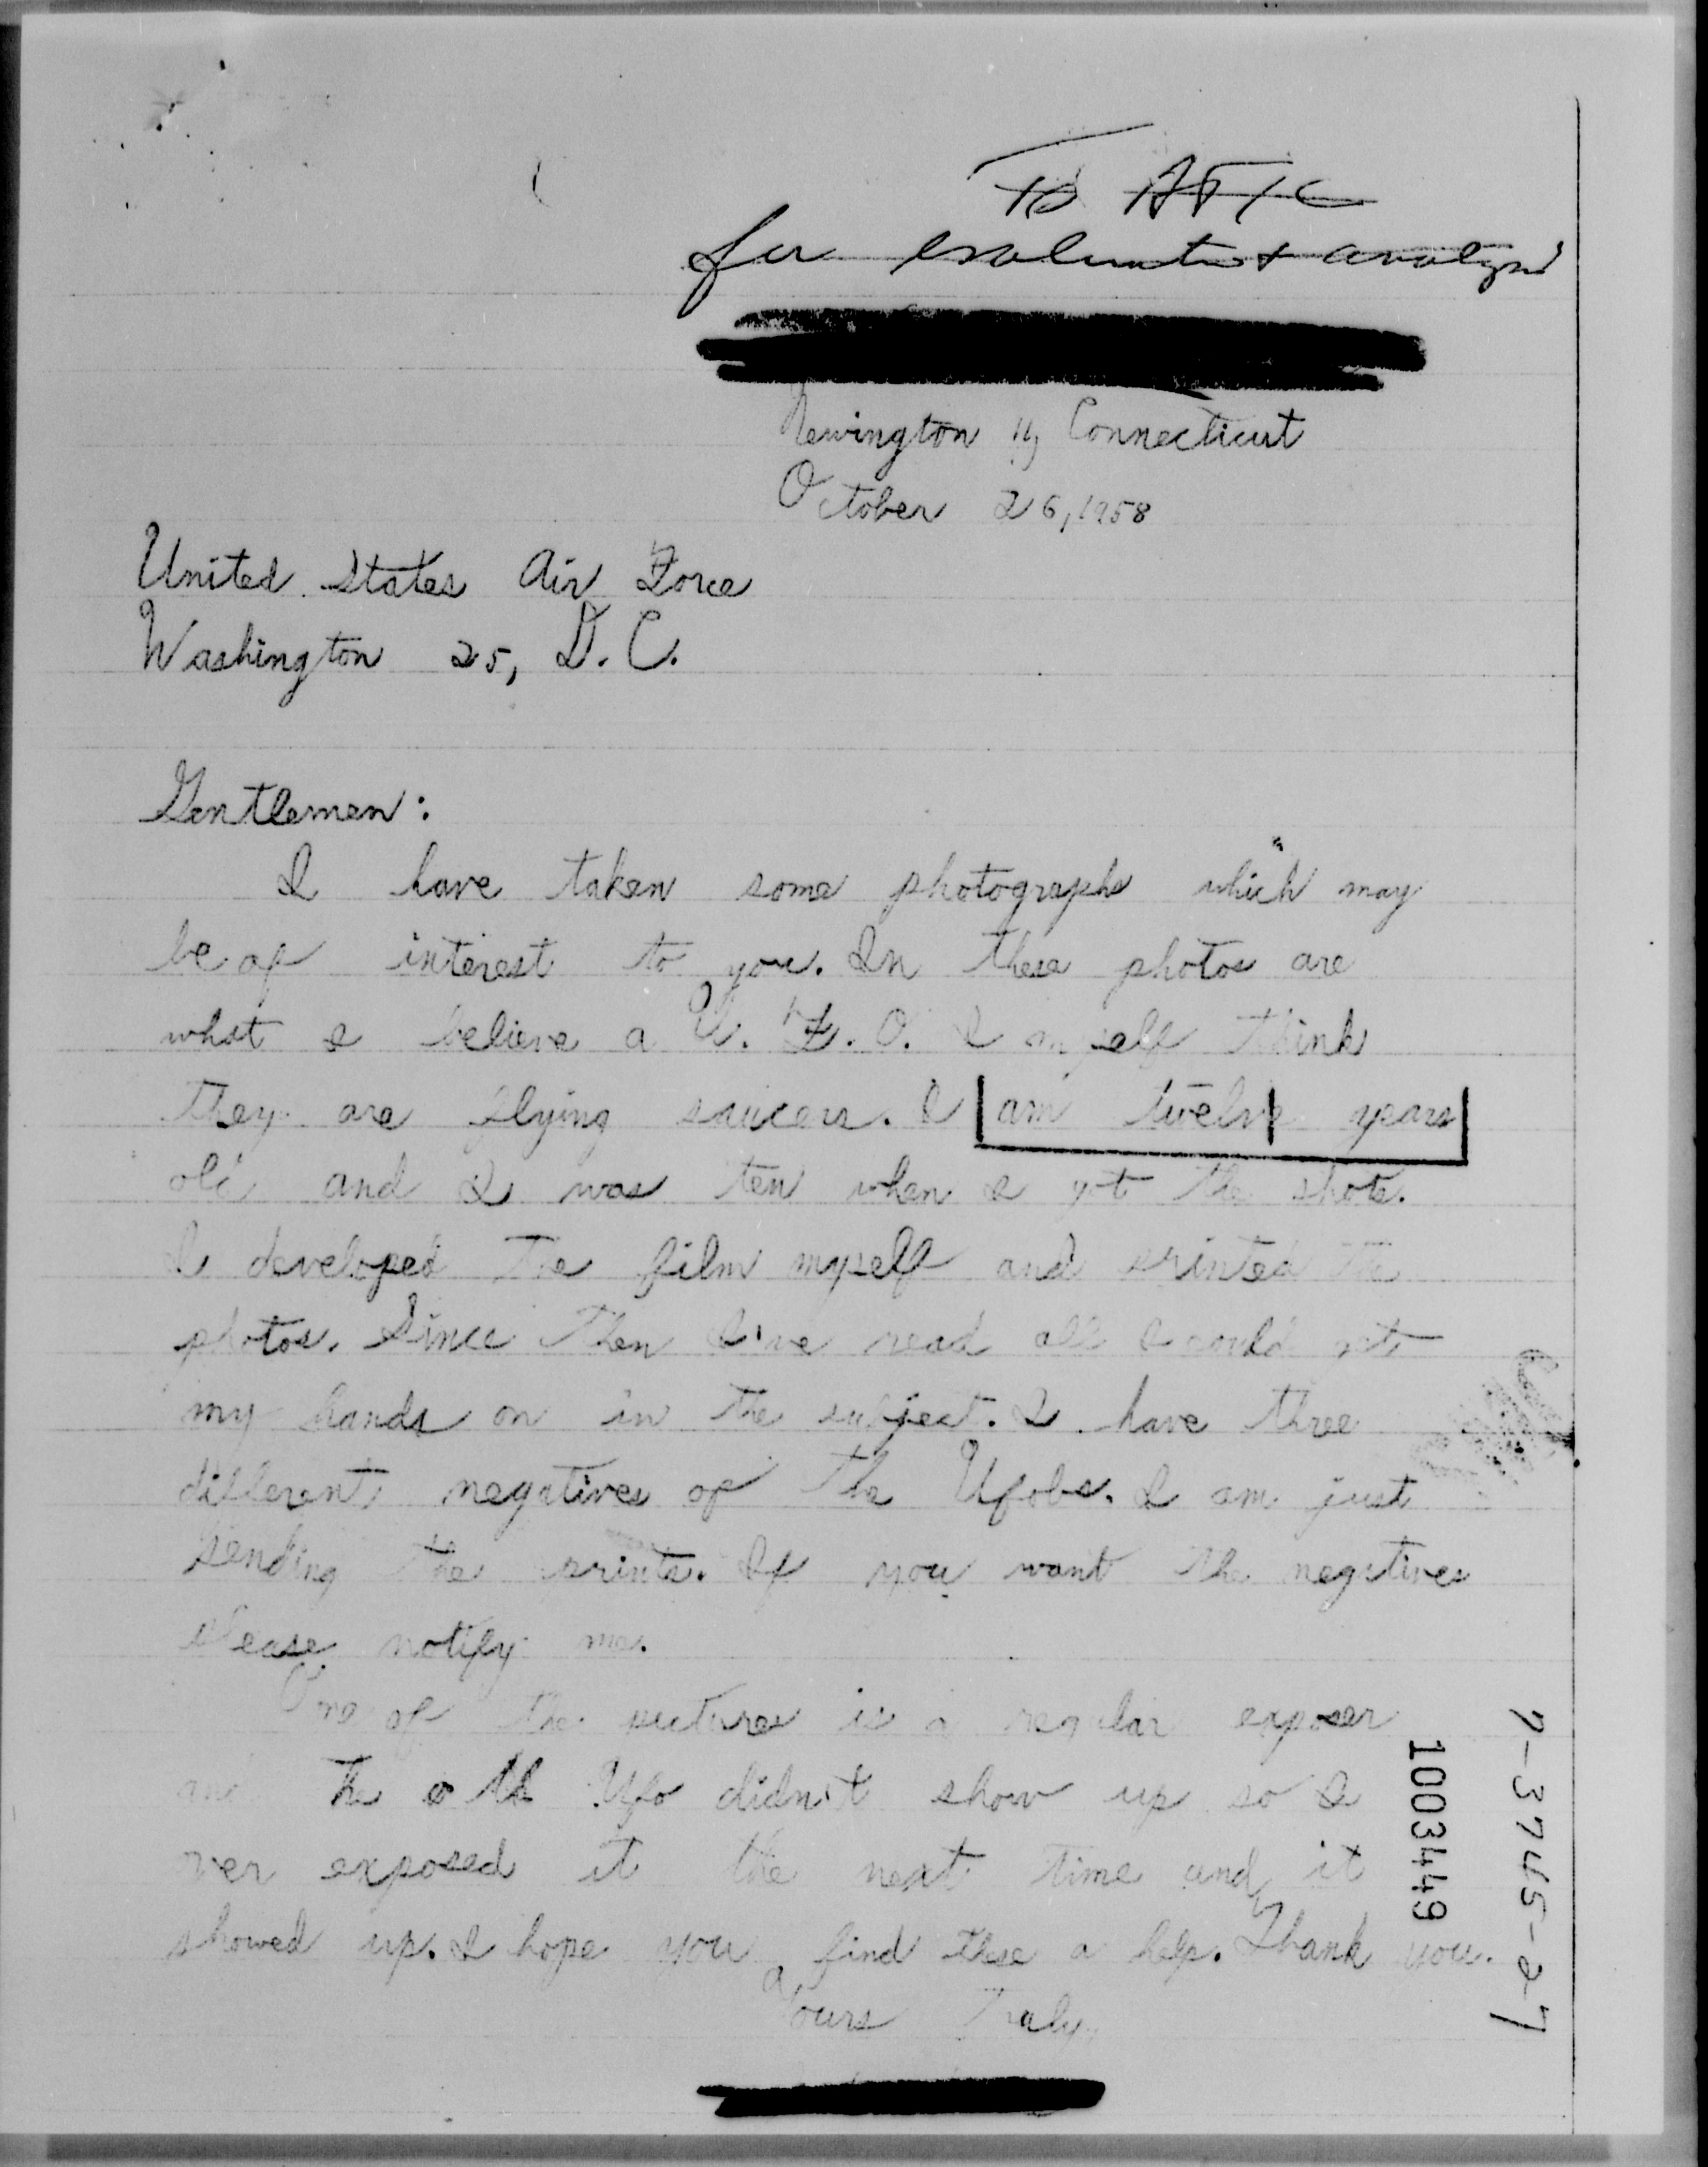 To ATIC
for evaluation & analysis
Newington 11, Connecticut
October 26, 1958
United States Air Force
Washington 25, D.C.
Gentlemen:
I have taken some photographs which may
be of interest to you. In these photos are
what I believe a U.F.O. I myself think
they are flying saucers. I am twelve years
old and I was ten when I got the shots.
I developed the film myself and printed the
photos. Since then I've read all I could get
my hands on in the subject. I have three
different negatives of the Ufobs. I am just
sending the prints. If you want the negatives
please notify me.
One of the pictures is a regular exposer
and the Ufo didn't show up so I
over exposed it the next time and it
showed up. I hope you find these a help. Thank you.
Yours Truly,
1003449
7-3745-27